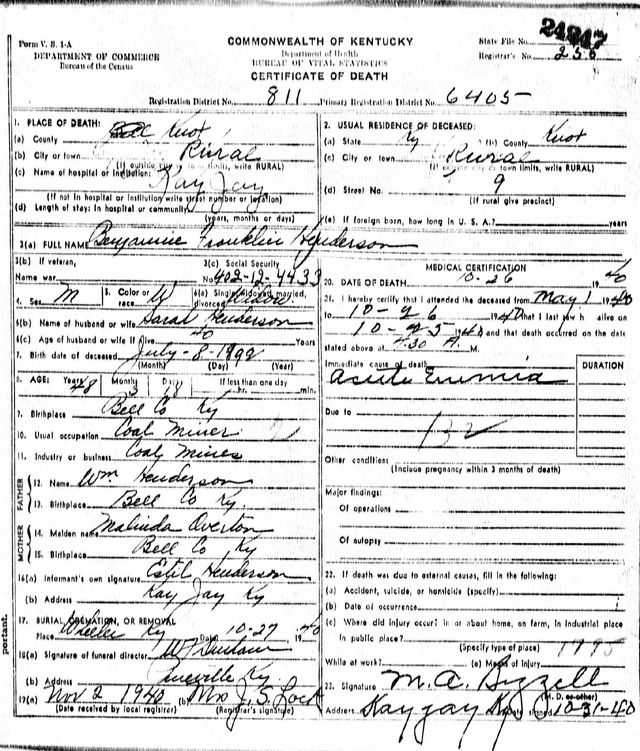 24247
Form V. S. 1-A
COMMONWEALTH OF KENTUCKY
State File No.
DEPARTMENT OF COMMERCE
Department of Health
Registrar's No. 256
Bureau of the Census
BUREAU OF VITAL STATISTICS
CERTIFICATE OF DEATH
Registration District No. 811 Primary Registration District No. 6405
1. PLACE OF DEATH:
(a) County Knox
(b) City or town Rural
(If outside city or town limits, write RURAL)
(c) Name of hospital or institution: Kay Jay
(If not in hospital or institution write street number or location)
(d) Length of stay: In hospital or community
(years, months or days)
2. USUAL RESIDENCE OF DECEASED:
(a) State Ky (b) County Knox
(c) City or town Rural
(If outside city or town limits, write RURAL)
(d) Street No. 9
(If rural give precinct)
(e) If foreign born, how long in U. S. A.? years
3(a) FULL NAME Benjamine Franklin Henderson
3(b) If veteran,
Name war
3(c) Social Security
No. 402-12-4433
4. Sex M
5. Color or race W
6(a) Single, widowed, married, divorced
6(b) Name of husband or wife Sarah Henderson
6(c) Age of husband or wife if alive 40 Years
7. Birth date of deceased July-8-1892
(Month) (Day) (Year)
8. AGE: Years 48 Months 3 Days 18 If less than one day
hr. min.
9. Birthplace Bell Co Ky
10. Usual occupation Coal Miner
11. Industry or business Coal Mines
FATHER
12. Name Wm Henderson
13. Birthplace Bell Co Ky.
MOTHER
14. Maiden name Malinda Overton
15. Birthplace Bell Co Ky
16(a) Informant's own signature Estil Henderson
(b) Address Kay Jay Ky
17. BURIAL, CREMATION, OR REMOVAL
Place Ky Date 10-27 1940
18(a) Signature of funeral director
(b) Address Pineville Ky
19(a) Nov 2 1940 (b) Mrs J. S. Lock
(Date received by local registrar) (Registrar's signature)
MEDICAL CERTIFICATION
20. DATE OF DEATH 10-26 1940
21. I hereby certify that I attended the deceased from May 1 1940
to 10-26 1940 that I last saw h alive on
10-25 1940 and that death occurred on the date
stated above at 4:30 A. M.
Immediate cause of death
DURATION
Acute Uremia
Due to
132
Other conditions
(Include pregnancy within 3 months of death)
Major findings:
Of operations
Of autopsy
22. If death was due to external causes, fill in the following:
(a) Accident, suicide, or homicide (specify)
(b) Date of occurrence
(c) Where did injury occur? in or about home, on farm, in industrial place
in public place?
(Specify type of place)
While at work? (e) Means of injury
23. Signature M. A. Bizzell
(M. D. or other)
Address Kayjay Ky Date signed 10-31-40
portant.